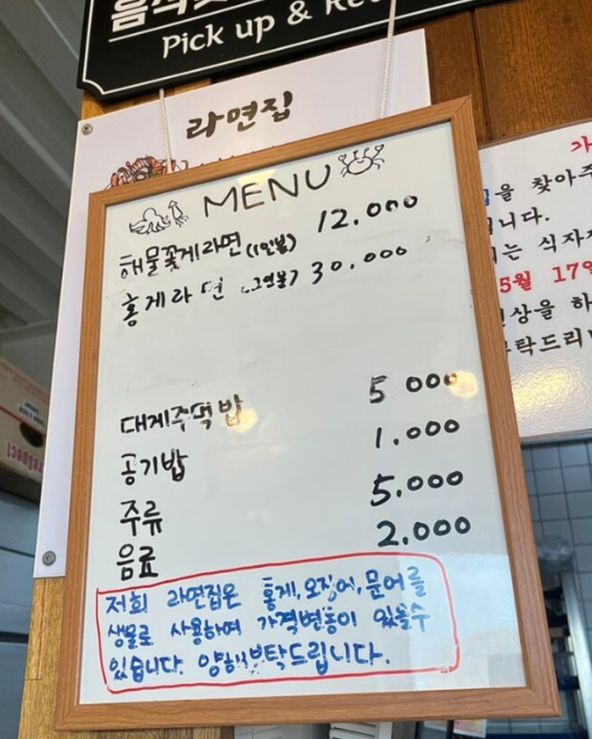 Pick up &
라면집
MENU
해물꽃게라면 (1인분) 12.000
홍게라면 30.000
대게주먹밥 5 000
공기밥 1.000
주류 5.000
음료 2.000
저희 라면집은 홍게, 오징어, 문어를
생물로 사용하여 가격변동이 있을수
있습니다. 양해부탁드립니다.
을 찾아주
니다.
는 식자재
5월 17일
인상을 하
부탁드리